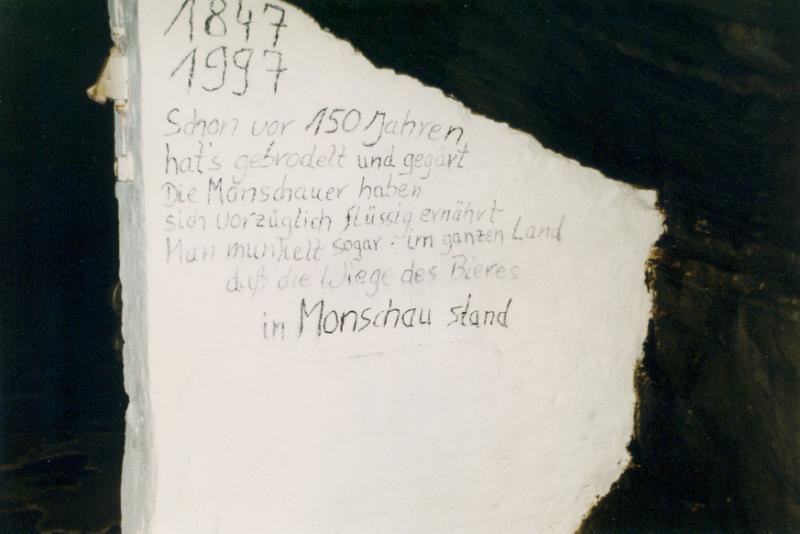 1847
1997
Schon vor 150 Jahren
hat's gebrodelt und gegärt
Die Monschauer haben
sich vorzüglich flüssig ernährt
Man munkelt sogar. im ganzen Land
daß die Wiege des Bieres
in Monschau stand